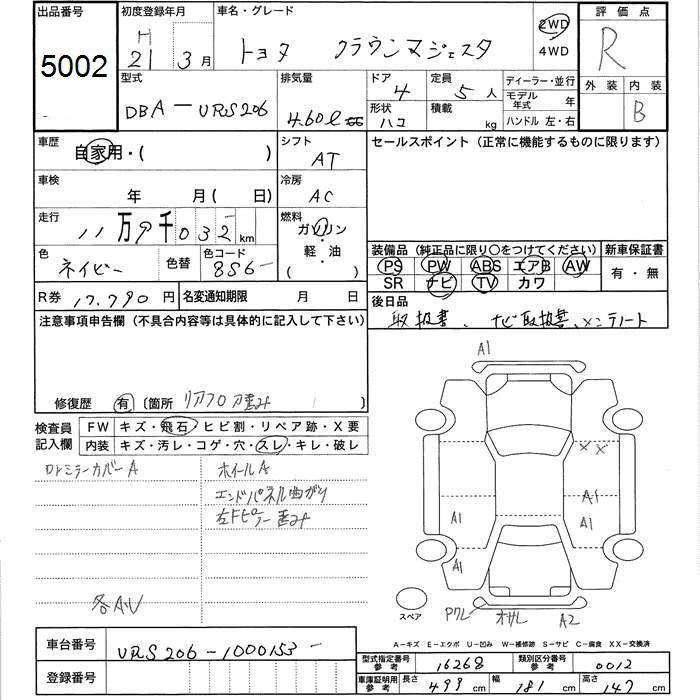 出品番号 初度登録年月 車名・グレード 2WD 評価点
5002 H 21 3月 トヨタ クラウンマジェスタ 4WD R
型式 排気量 ドア 定員 ディーラー・並行 外装 内装
DBA-URS206 4.60l 4 5人 モデル年式 年 B
形状 積載 ハンドル 左・右
ハコ kg
車歴 自家用・( ) シフト AT セールスポイント(正常に機能するものに限ります)
車検 年 月( 日) 冷房 AC
走行 11万9千032km 燃料 ガソリン
軽・油
( )
色 ネイビー 色替 色コード 8S6 装備品(純正品に限り○をつけてください) 新車保証書
PS PW ABS エアB AW 有・無
SR ナビ TV カワ
R券 17,790円 名変通知期限 月 日 後日品
取扱書、ナビ取扱書、メンテノート
注意事項申告欄(不具合内容等は具体的に記入して下さい)
修復歴 有 〔箇所 リアフロア歪み 〕
検査員 記入欄 FW キズ・飛石・ヒビ割・リペア跡・X要
内装 キズ・汚レ・コゲ・穴・スレ・キレ・破レ
Drミラーカバー A ホイールA
エンドパネル曲がり
左Fピラー歪み
各AU
A1
XX
A1
A1 A1
A1
スペア
Pワレ オサレ A2
A-キズ E-エクボ U-凹み W-補修跡 S-サビ C-腐食 XX-交換済
車台番号 URS206-1000153
登録番号
型式指定番号 参考 16268 類別区分番号 参考 0012
車庫証明用 参考 長さ 499cm 幅 181cm 高さ 147cm